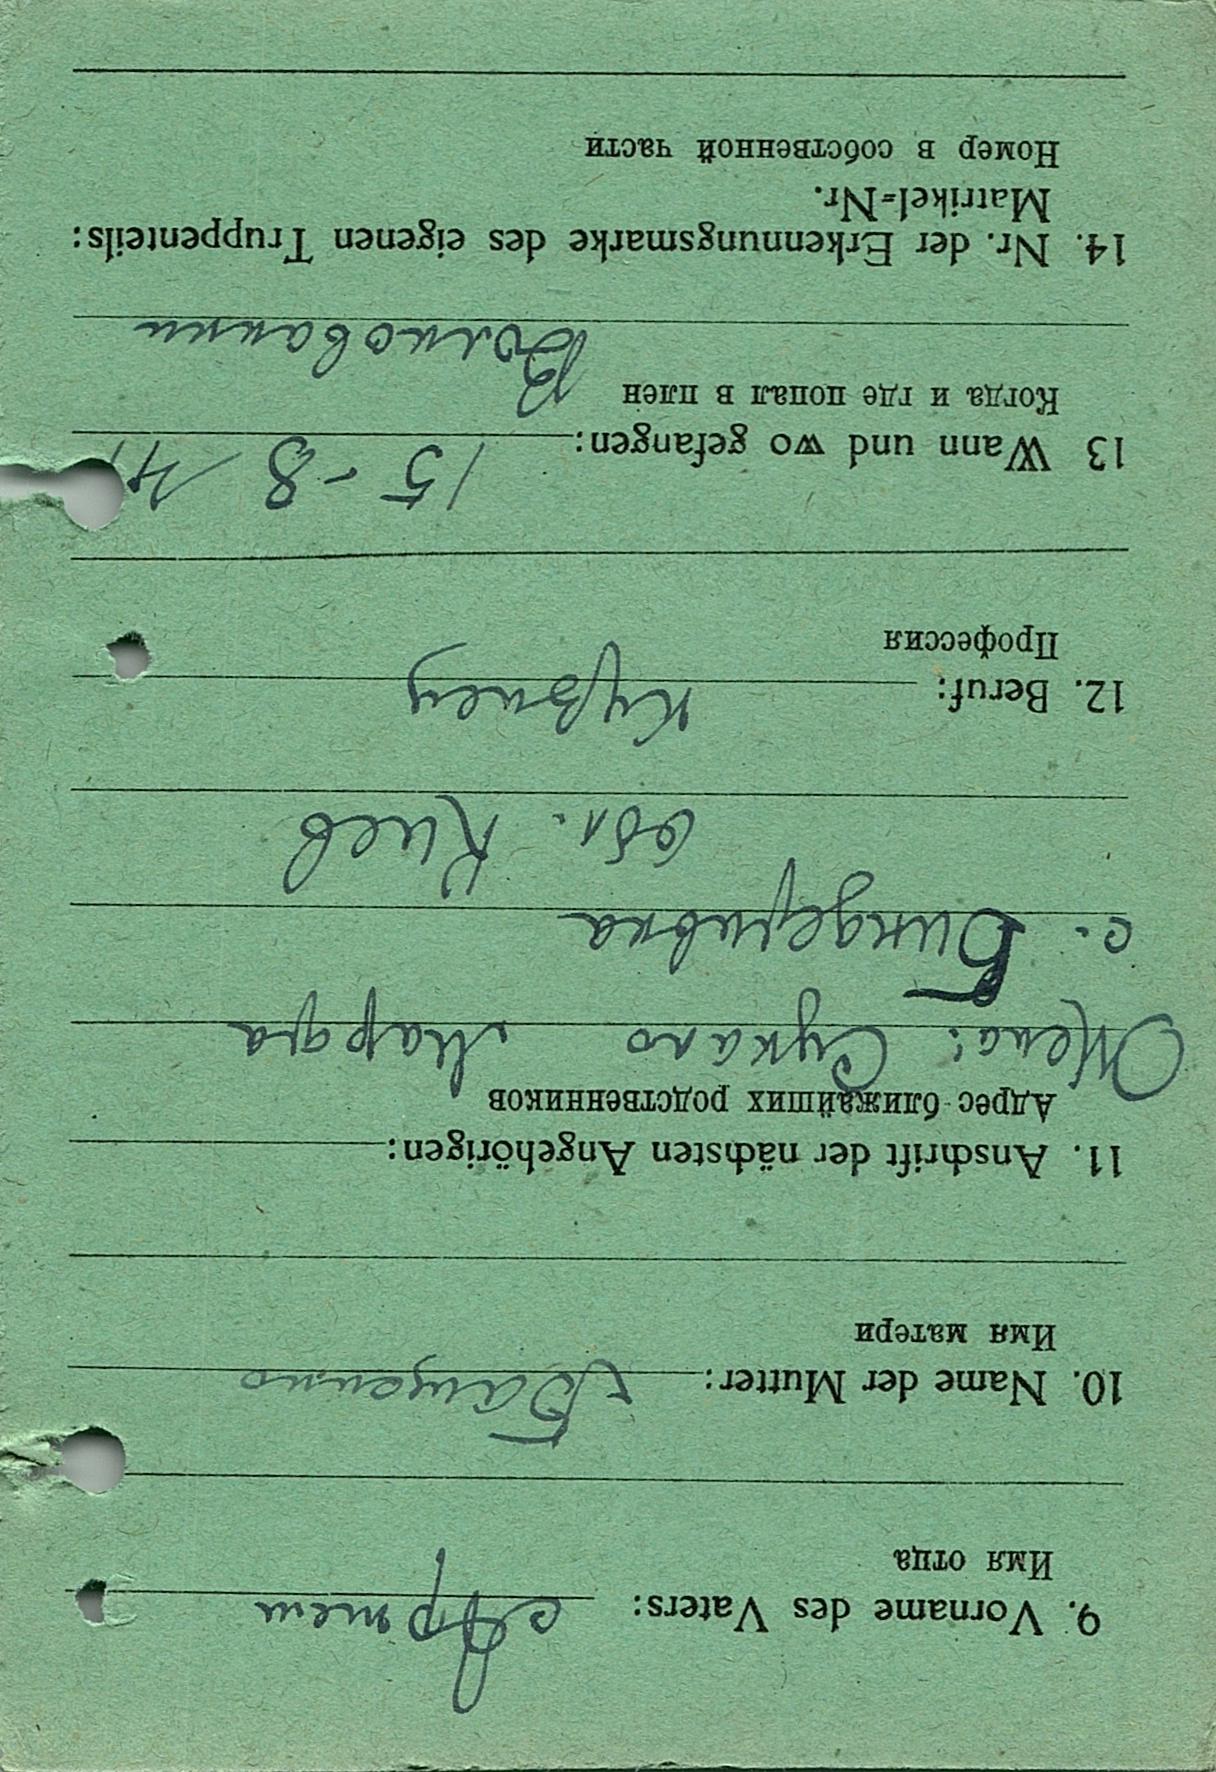 9. Vorname des Vaters: Артем
Имя отца
10. Name der Mutter: Баценко
Имя матери
11. Anschrift der nächsten Angehörigen:
Адрес ближайших родственников
Жена: Сукало Марфа
с. Биндеривка
обл. Киев
12. Beruf: Кузнец
Профессия
13 Wann und wo gefangen: 15-8 41
Когда и где попал в плен
Волноваики
14. Nr. der Erkennungsmarke des eigenen Truppenteils:
Matrikel=Nr.
Номер в собственной части